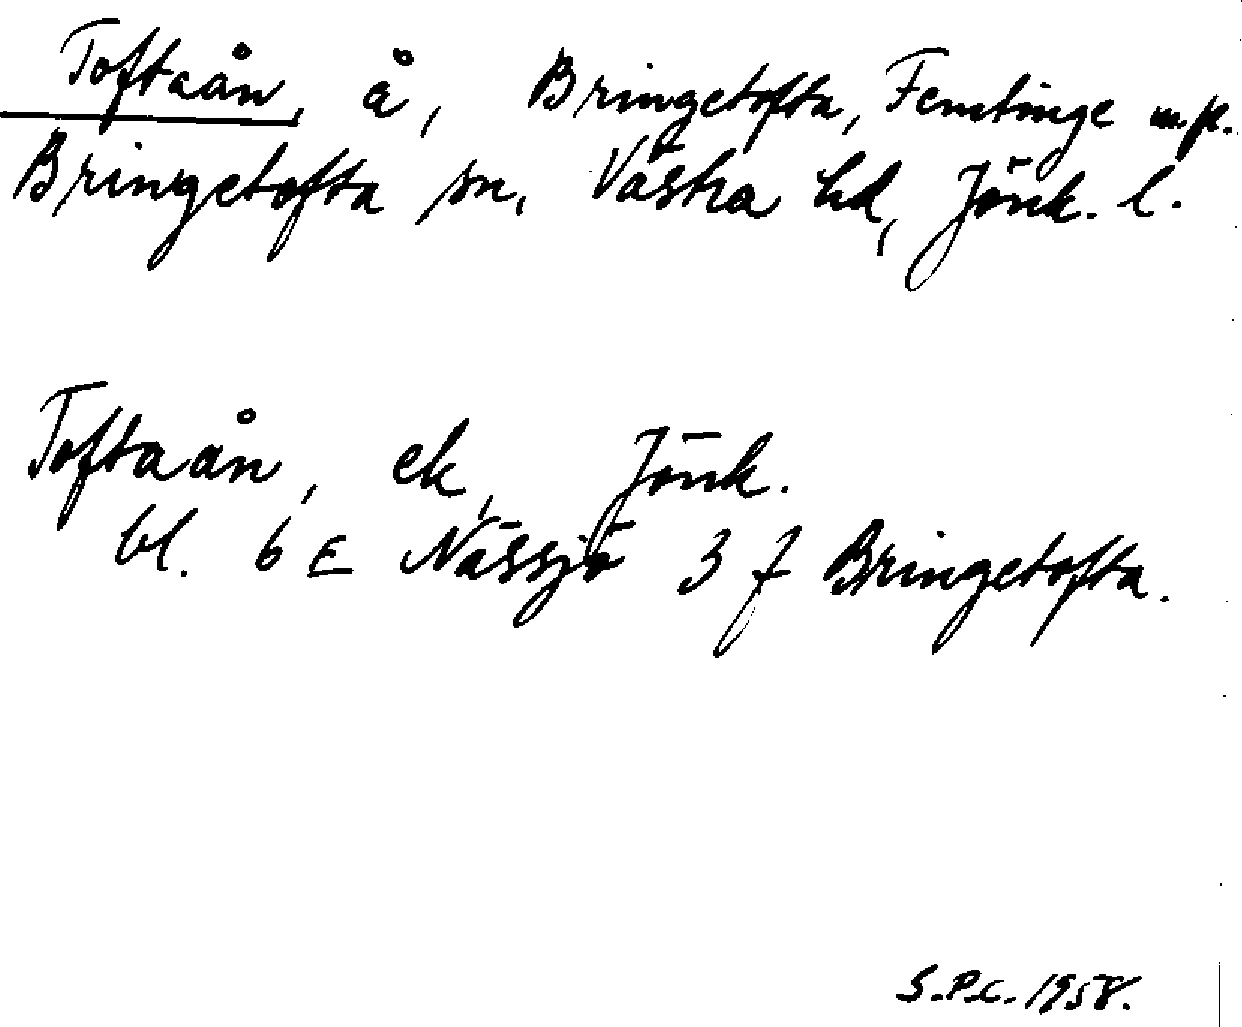 Toftaån, å, Bringetofta, Femtinge m.fl.
Bringetofta sn, Västra hd, Jönk. l.
Toftaån, ek, Jönk.
bl. 6 E Nässjö 3 f Bringetofta.
S.P.C. 1958.